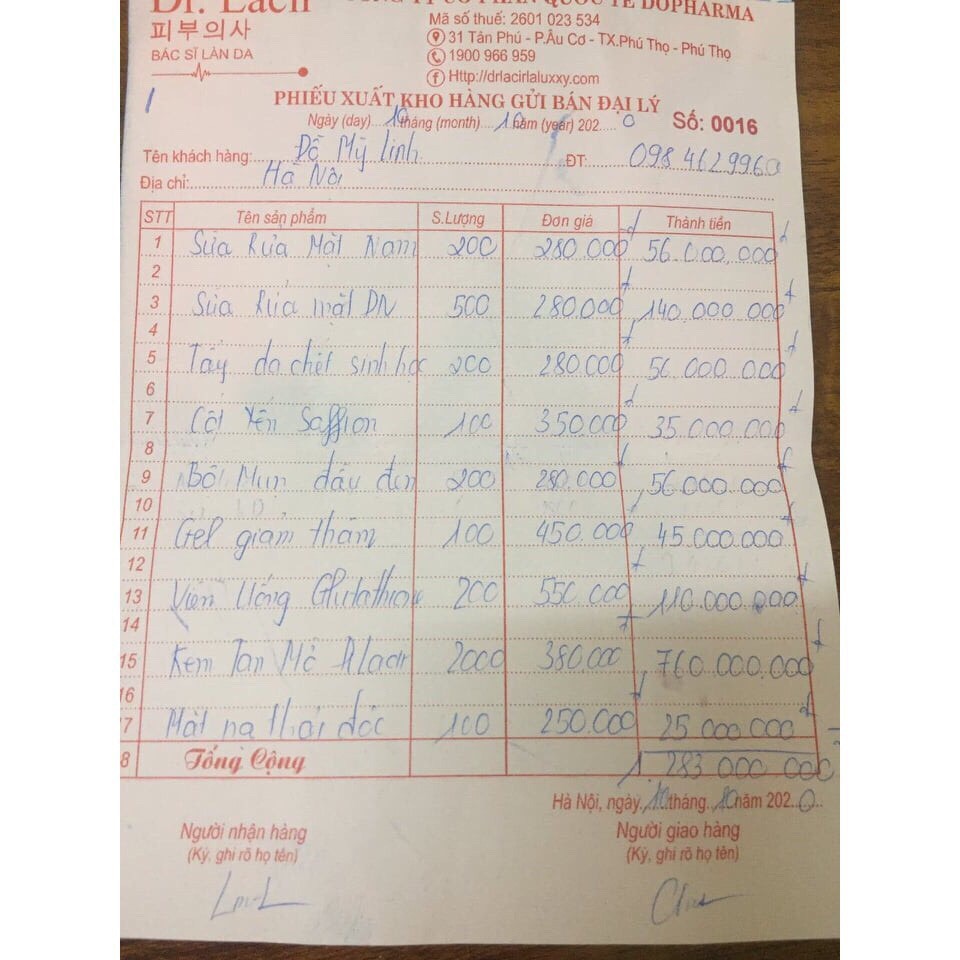 Dr. Lacir
피부의사
BÁC SĨ LÀN DA
CÔNG TY CỔ PHẦN QUỐC TẾ DOPHARMA
Mã số thuế: 2601 023 534
31 Tân Phú - P.Âu Cơ - TX.Phú Thọ - Phú Thọ
1900 966 959
Http://drlacirlaluxxy.com
PHIẾU XUẤT KHO HÀNG GỬI BÁN ĐẠI LÝ
Ngày (day) 10 tháng (month) 10 năm (year) 2020 Số: 0016
Tên khách hàng: Đỗ Mỹ Linh ĐT: 0984629960
Địa chỉ: Hà Nôi
STT Tên sản phẩm S.Lượng Đơn giá Thành tiền
1 Sữa Rửa Mặt Nam 200 280.000đ 56.000.000đ
2
3 Sữa Rửa mặt DN 500 280.000đ 140.000.000đ
4
5 Tẩy da chết sinh học 200 280.000đ 56.000.000đ
6
7 Cốt Yến Saffron 100 350.000đ 35.000.000đ
8
9 Bôi Mụn đầu đen 200 280.000đ 56.000.000đ
10
11 Gel giảm thâm 100 450.000đ 45.000.000đ
12
13 Viên Uống Glutathione 200 550.000đ 110.000.000đ
14
15 Kem Tan Mỡ Dlacir 2000 380.000đ 760.000.000đ
16
17 Mặt nạ thải độc 100 250.000đ 25.000.000đ
18 Tổng Cộng 1 283 000 000
Hà Nội, ngày 10 tháng 10 năm 2020
Người nhận hàng Người giao hàng
(Ký, ghi rõ họ tên) (Ký, ghi rõ họ tên)